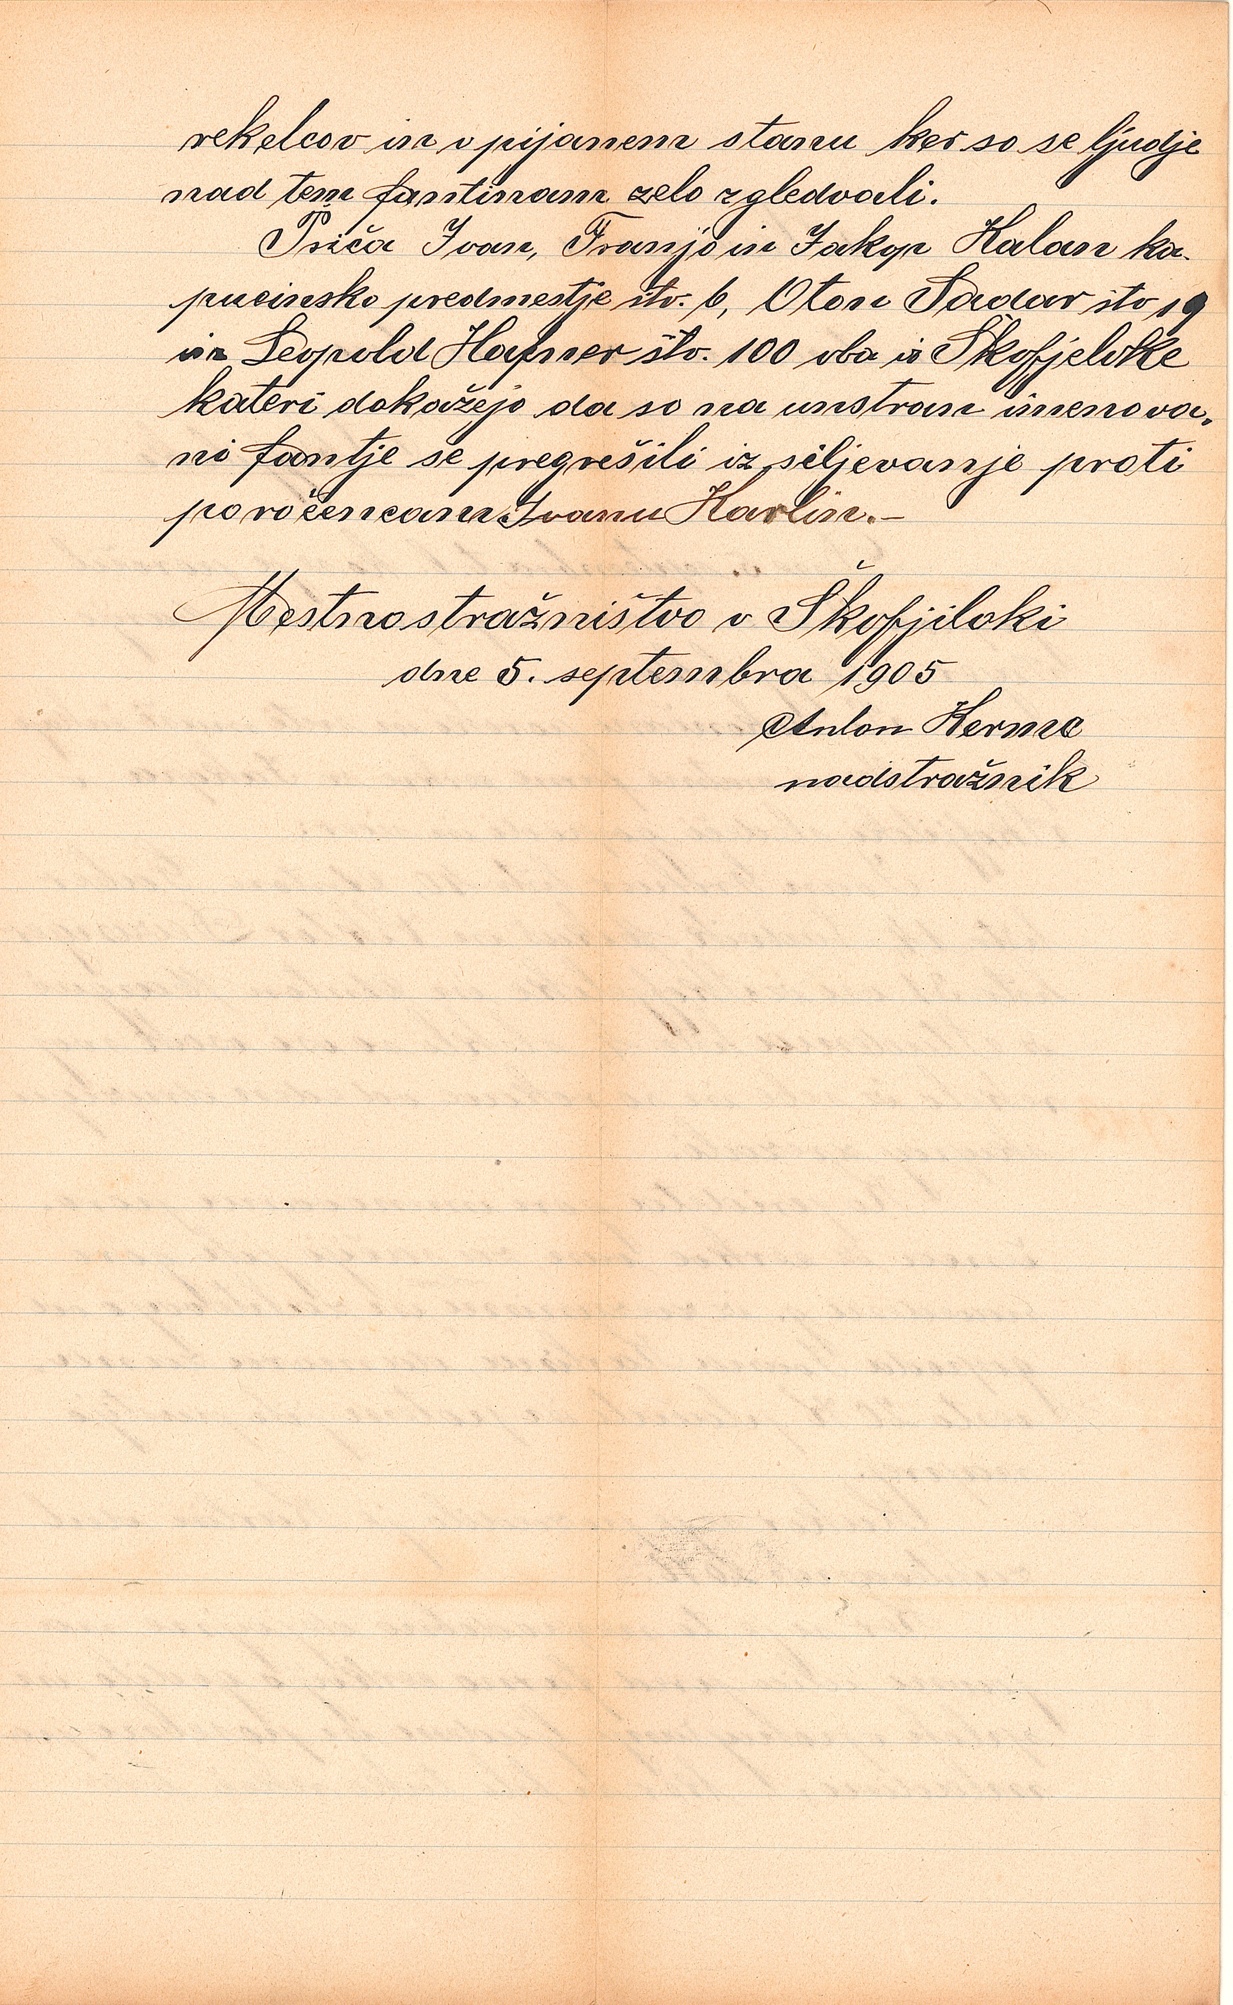 rekelcov in v pijanem stanu ker so se ljudje
nad tem fantinam zelo zgledvali.
Priča Ivan, Franjo in Jakop Halan ka-
pucinsko predmestje štv. 6, Oton Sadar štv 19
in Leopold Hafner štv. 100 oba iz Škofjeloke
kateri dokažejo da so na unstran imenova-
ni fantje se pregrešili iz siljevanje proti
poročencam Ivanu Karlin.—
Mestnostražništvo v Škofjiloki
dne 5. septembra 1905
Anton Herme
nadstražnik